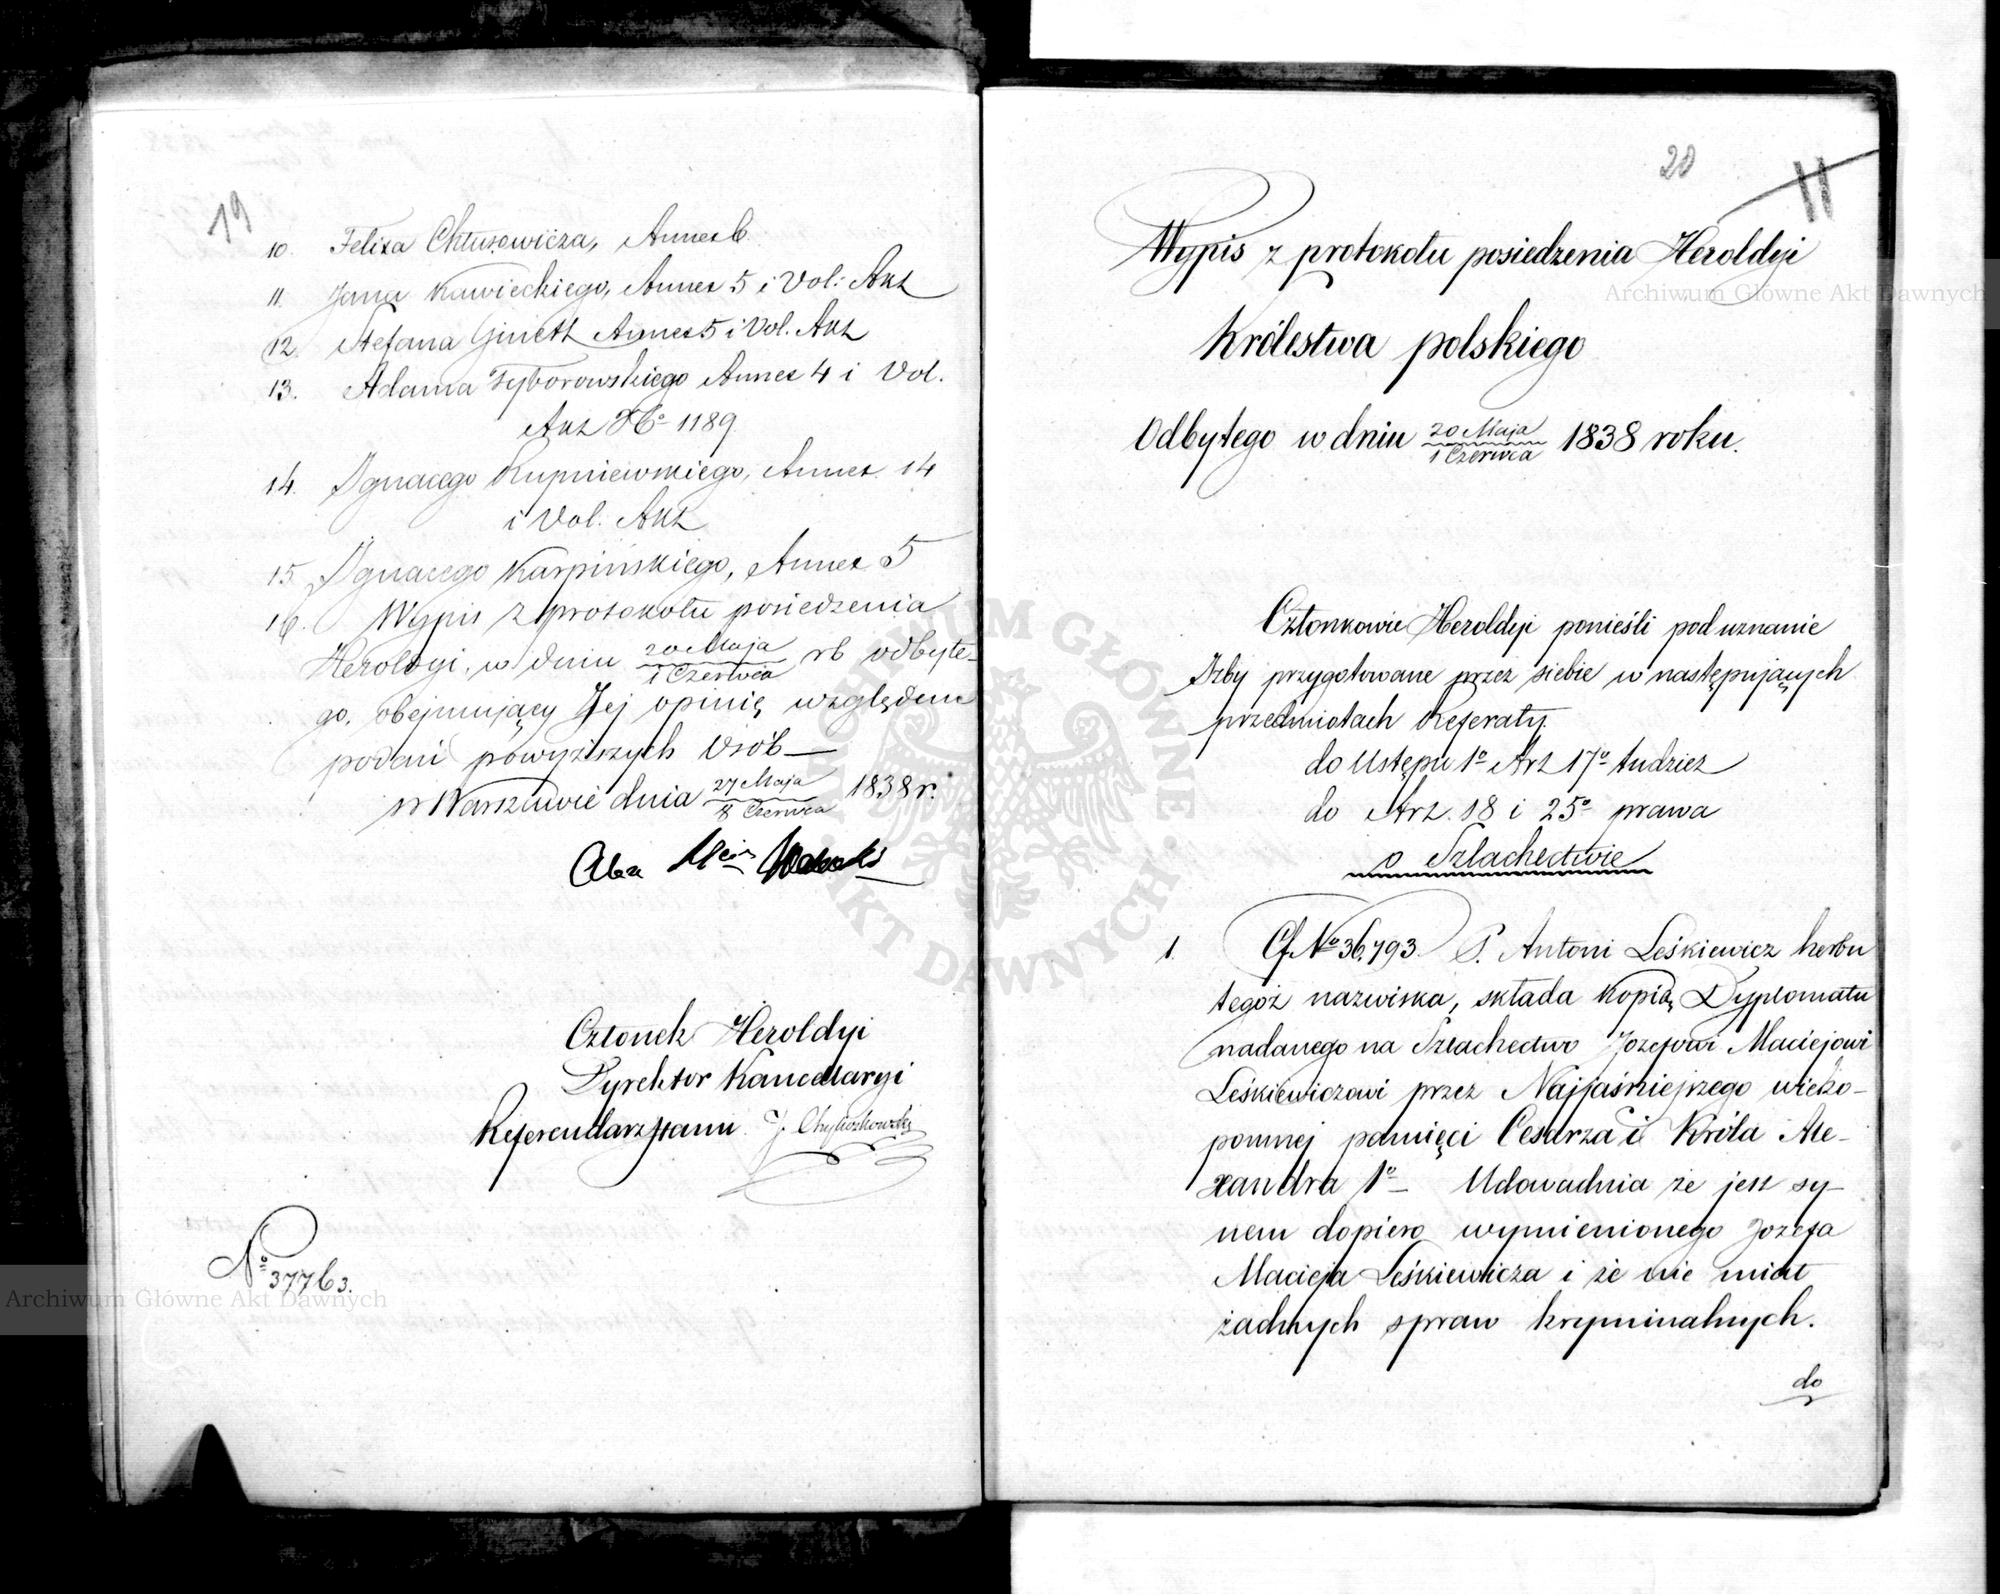 19
10. Felixa Chtusowicza, Annex 6
11. Jana Kawieckiego, Annex 5 i Vol: Akt
12. Stefana Ginett Annex 5 i Vol. Akt
13. Adama Zyborowskiego Annex 4 i Vol.
Akt No 1189
14. Ignacego Kupniewskiego, Annex 14
i Vol. Akt
15. Ignacego Karpińskiego, Annex 5
16. Wypis z protokołu posiedzenia
Heroldyi, w dniu 20 Maja / 1 Czerwca rb odbyte-
go, obejmujący Jej opinię względem
podań powyższych Osób
w Warszawie dnia 27 Maja / 8 Czerwca 1838 r.
Członek Heroldyi
Dyrektor Kancellaryi
Referendarz Stanu
No 37763.
20
11
Wypis z protokołu posiedzenia Heroldyi
Królestwa polskiego
Odbytego w dniu 20 Maja / 1 Czerwca 1838 roku.
Członkowie Heroldyi ponieśli pod uznanie
Izby przygotowane przez siebie w następujących
przedmiotach Referaty.
do Ustępu 1o Art 17o tudzież
do Art. 18 i 25o prawa
o Szlachectwie
1. Cf. No 36,793. P. Antoni Leśkiewicz herbu
tegoż nazwiska, składa kopią Dyplomatu
nadanego na Szlachectwo Jozefowi Maciejowi
Leśkiewiczowi przez Najjaśniejszego wieko-
pomnej pamięci Cesarza i Króla Ale-
xandra 1o Udowadnia że jest sy-
nem dopiero wymienionego Jozefa
Macieja Leśkiewicza i że nie miał
żadnych spraw kryminalnych.
do
Archiwum Główne Akt Dawnych
Archiwum Główne Akt Dawnych
ARCHIWUM GŁÓWNE AKT DAWNYCH